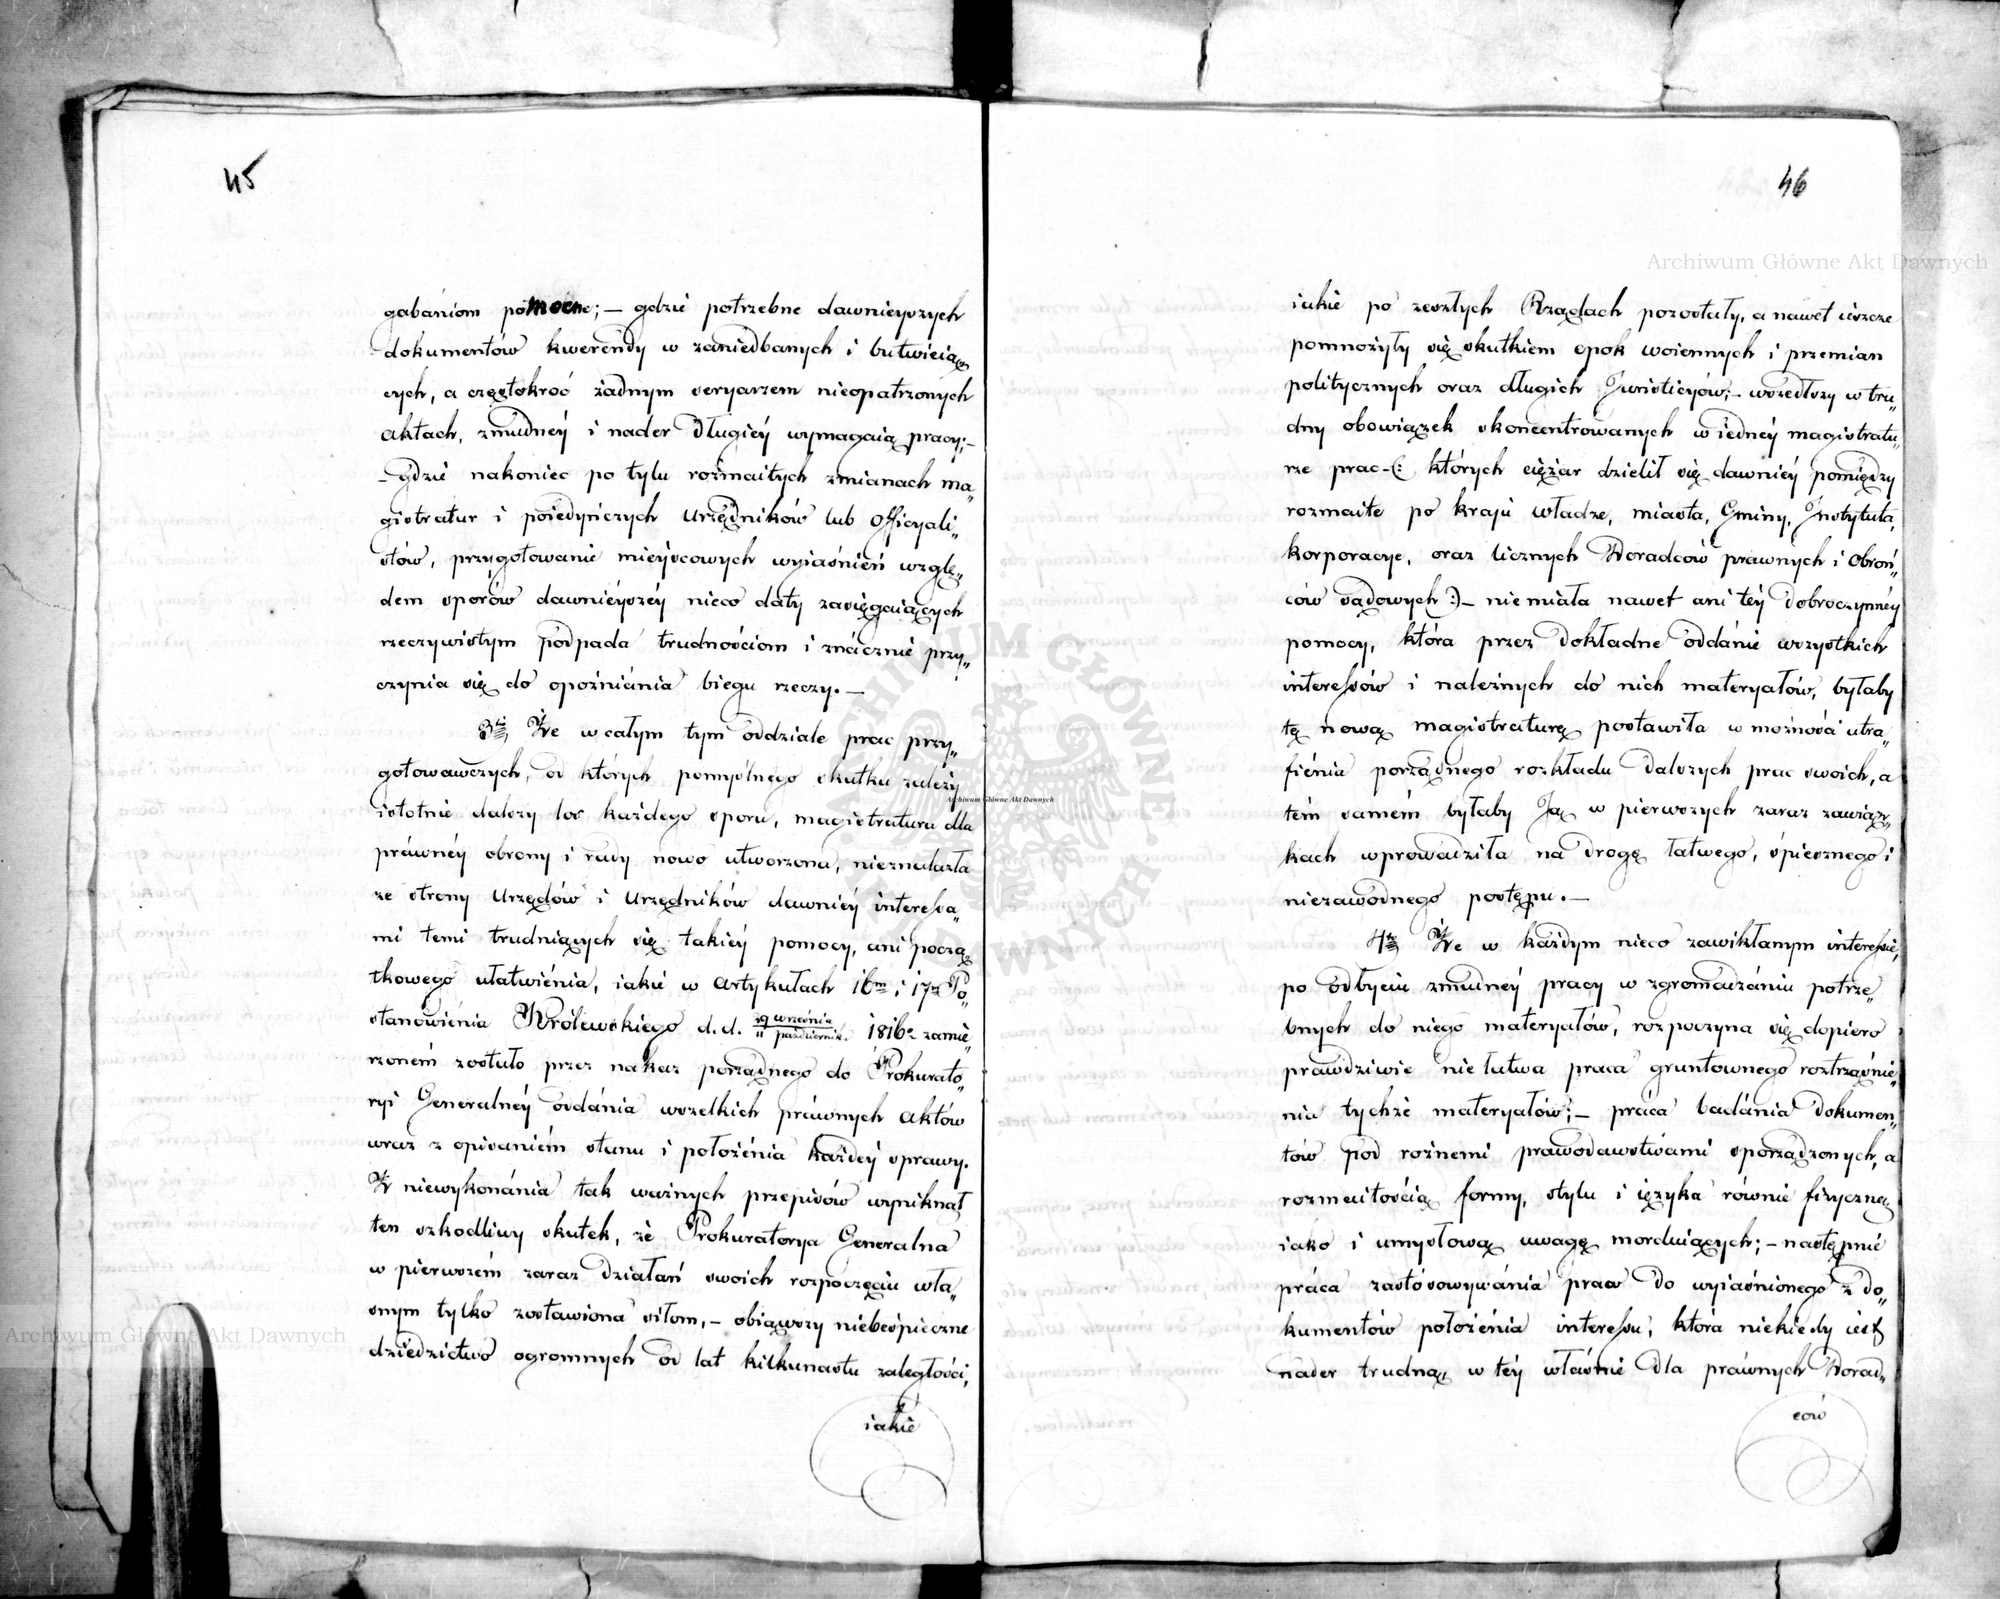 45
gabaniom pomocne; – gdzie potrzebne dawnieyszych
dokumentów kwerendy w zaniedbanych i butwieią„
cych, a częstokroć żadnym seryarzem nieopatrzonych
aktach, zmudnéy i nader długiéy wymagaią pracy; –
– gdzie nakoniec po tylu rożmaitych zmianach ma„
gistratur i poiedyńczych Urzędników lub Officyali„
stów, przygotowanie mieyscowych wyiaśnień wzglę„
dem sporów dawnieyszéy nieco daty zasięgaiących
rzeczywistym podpada trudnościom i znácznie przy„
czynia się do opoźniánia biegu rzeczy. –
3cie, Że w całym tym oddziale prac przy„
gotowawczych, od których pomyślnego skutku zależy
istotnie dalszy los każdego sporu, magistratura dla
práwnéy obrony i rady nowo utworzona, nieznalazła
ze strony Urzędów i Urzędników dawniéy interessa„
mi temi trudniących się takiéy pomocy, ani począ„
tkowego ułatwiénia, iakie w Artykułach 16m i 17m Po„
stanowiénia Królewskiego d. d. 29 Września / 11 Październik. 1816 r. zamie„
rzoném zostało przez nakaz porządnego do Prokurato„
ryi Generalnéy oddánia wszelkich práwnych aktów
wraz z opisaniém stanu i położénia każdéy sprawy.
Z niewykonánia tak ważnych przepisów wyniknął
ten szkodliwy skutek, że Prokuratorya Generalna
w pierwszém zaraz działań swoich rozpoczęciu wła„
snym tylko zostawiona siłom, – obiąwszy niebeśpieczne
dziedzictwo ogromnych od lat kilkunastu zaległości,
iakie
46
iakie po zeszłych Rządach pozostały, a nawet ieszcze
pomnożyły się skutkiem epok woiennych i przemian
politycznych oraz długich Juristicyów; – wszedłszy w tru„
dny obowiązek skoncentrowanych w iednéy magistratu„
rze prac – (: których ciężar dzielił się dawniéy pomiędzy
rozmaite po kraju władze, miasta, Gminy, Instytuta,
korporacye, oraz licznych Doradców prawnych i Obroń„
ców sądowych :) – niemiała nawet ani téy dobroczynnéy
pomocy, która przez dokładne oddánie wszystkich
interessów i należnych do nich materyałów, byłaby
tę nową magistraturę postawiła w możności utra„
fiénia porządnego rozkładu dalszych prac swoich, a
tém samém byłaby Ją w pierwszych zaraz zawiąz„
kach wprowadziła na drogę łatwego, śpiesznego i
niezawodnego postępu. –
4te Że w każdym nieco zawikłanym interessie,
po odbyciu zmudnéy pracy w zgromadzániu potrze„
bnych do niego materyałów, rozpoczyna się dopiero
prawdziwie niełatwa praca gruntownego roztrząśnie„
nia tychże materyałów; – práca badánia dokumen„
tów pod rożnemi prawodawstwami sporządzonych, a
rozmaitością formy, stylu i ięzyka równie fizyczną
iako i umysłową uwagę morduiących; – następnie
práca zastósowywánia praw do wyiaśnionego z do„
kumentów położénia interessu, która niekiedy iest
nader trudną, w téy właśnie dla práwnych Dorad„
ców
Archiwum Główne Akt Dawnych
Archiwum Główne Akt Dawnych
Archiwum Główne Akt Dawnych
ARCHIWUM GŁÓWNE AKT DAWNYCH